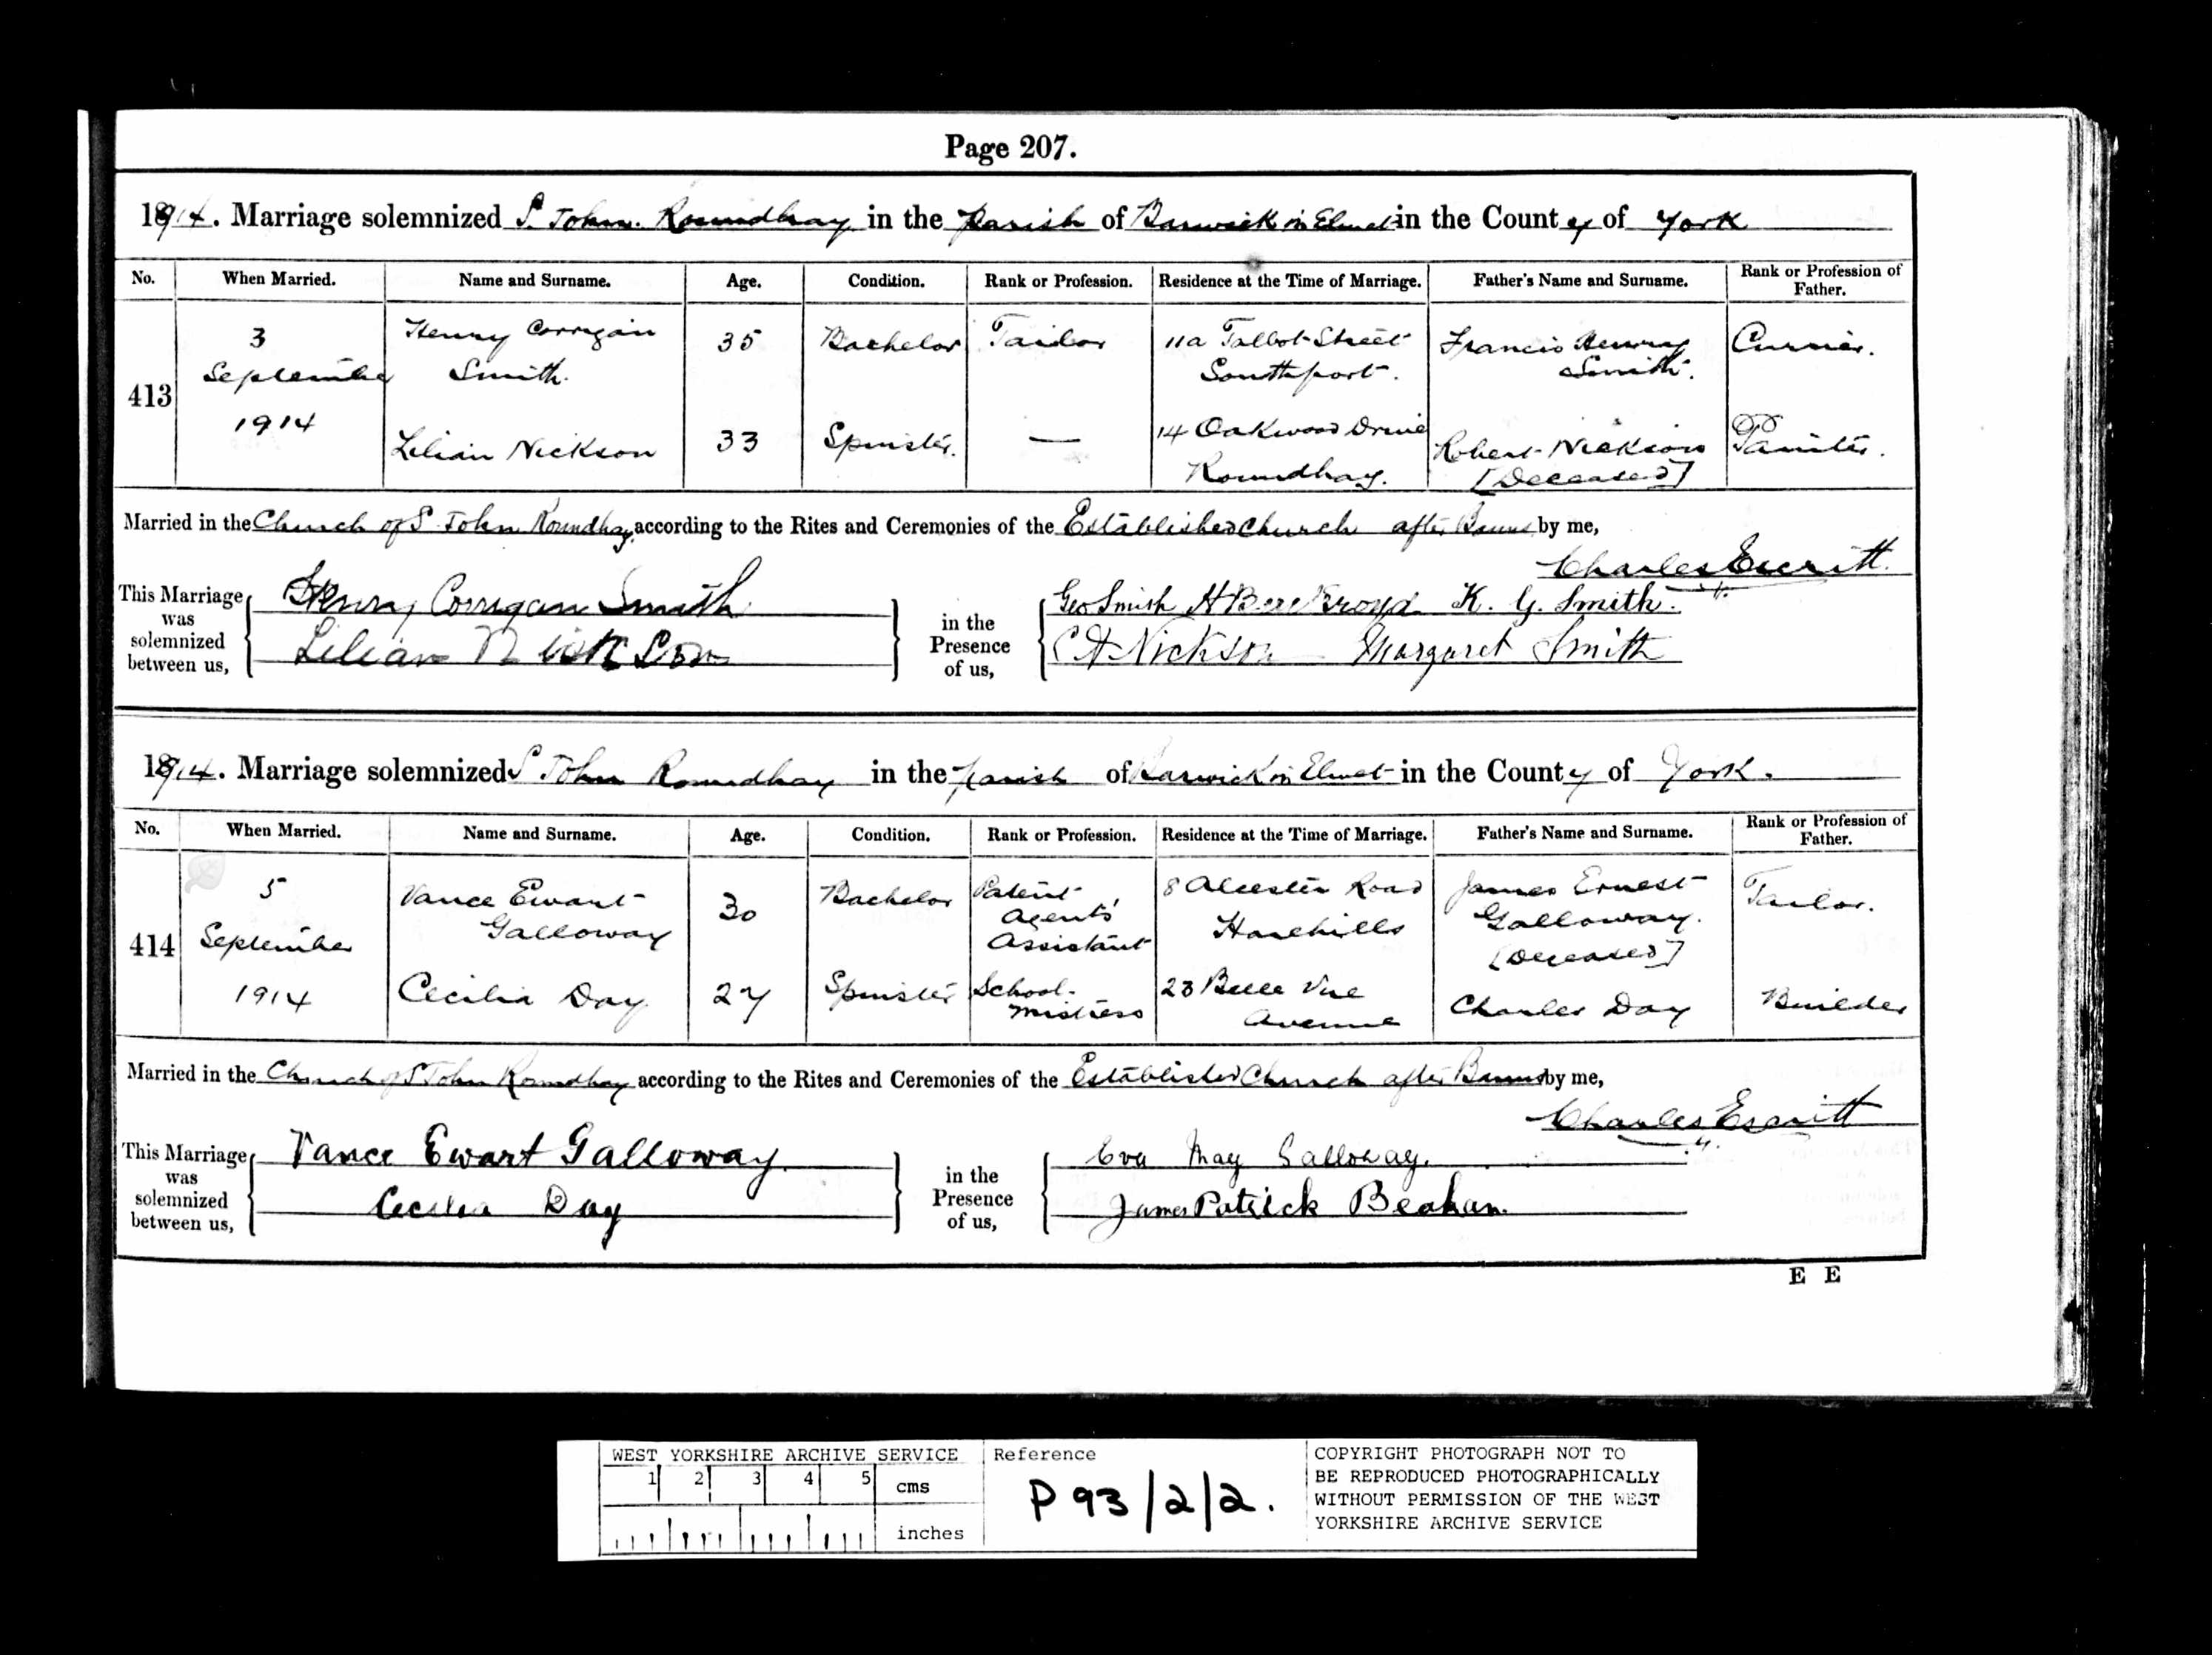 Page 207.
1914. Marriage solemnized S. John. Roundhay in the parish of Barwick in Elmet in the County of York
No. When Married. Name and Surname. Age. Condition. Rank or Profession. Residence at the Time of Marriage. Father's Name and Surname. Rank or Profession of Father.
413 3 September 1914
Henry Corrigan Smith. 35 Bachelor Tailor 11a Talbot Street Southport. Francis Henry Smith. Currier.
Lilian Nickson 33 Spinster. — 14 Oakwood Drive Roundhay. Robert Nickson [Deceased] Painter.
Married in the Church of S. John Roundhay according to the Rites and Ceremonies of the Established Church after Banns by me,
Charles Escritt.
This Marriage was solemnized between us, Henry Corrigan Smith Lilian Nickson
in the Presence of us, Geo Smith K. G. Smith. C A Nickson Margaret Smith
1914. Marriage solemnized S John Roundhay in the parish of Barwick in Elmet in the County of York.
No. When Married. Name and Surname. Age. Condition. Rank or Profession. Residence at the Time of Marriage. Father's Name and Surname. Rank or Profession of Father.
414 5 September 1914
Vance Ewart Galloway 30 Bachelor Patent Agents' Assistant 8 Alcester Road Harehills James Ernest Galloway. [Deceased] Tailor.
Cecilia Day 27 Spinster School-mistress 23 Belle Vue Avenue Charles Day Builder
Married in the Church of S John Roundhay according to the Rites and Ceremonies of the Established Church after Banns by me,
Charles Escritt
This Marriage was solemnized between us, Vance Ewart Galloway. Cecilia Day
in the Presence of us, Eva May Galloway. James Patrick Beahan.
E E
WEST YORKSHIRE ARCHIVE SERVICE
1 2 3 4 5 cms
inches
Reference
P 93/2/2.
COPYRIGHT PHOTOGRAPH NOT TO
BE REPRODUCED PHOTOGRAPHICALLY
WITHOUT PERMISSION OF THE WEST
YORKSHIRE ARCHIVE SERVICE